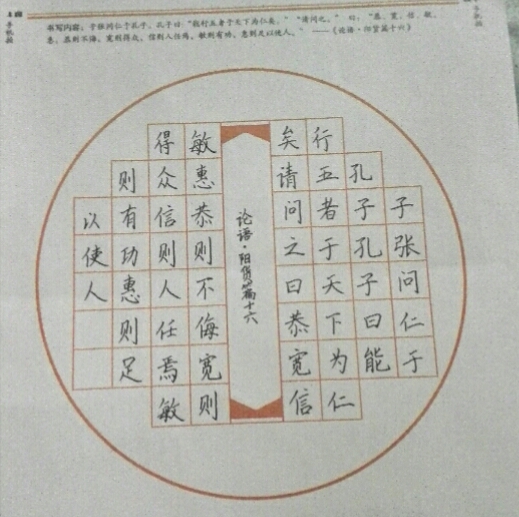 书写内容：子张问仁于孔子。孔子曰："能行五者于天下为仁矣。""请问之。"曰："恭、宽、信、敏、
惠。恭则不侮，宽则得众，信则人任焉，敏则有功，惠则足以使人。" ——《论语·阳货篇十六》
子张问仁于
孔子孔子曰能
行五者于天下为仁
矣请问之曰恭宽信
论语·阳货篇十六
敏惠恭则不侮宽则
得众信则人任焉敏
则有功惠则足
以使人